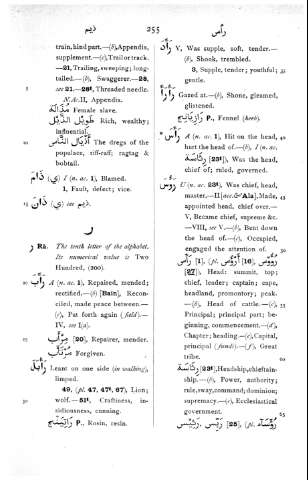 ذيم 255 رأس
train, hind part.—(b), Appendix,
supplement.—(c), Trail or track.
—21, Trailing, sweeping; long-
tailed.—(b), Swaggerer.—28,
see 21.—28¹, Threaded needle.
N.Ac.II, Appendix.
Female slave. مُذَالَة
Rich, wealthy; طَوِيل الذَّيْل
influential.
The dregs of the أَذْيَال النَّاس
populace, riff-raff; ragtag &
bobtail.
ذَامَ (ي) I (n. ac. 1), Blamed.
1, Fault, defect; vice.
ذَان (ي) see ذيم.
ر
ر Rā. The tenth letter of the alphabet.
Its numerical value is Two
Hundred, (200).
رَأَبَ A (n. ac. 1), Repaired, mended;
rectified.—(b) [Bain], Recon-
ciled, made peace between.—
(c), Pat forth again (field).—
IV, see I(a).
[20], Repairer, mender.
Forgiven.
Leant on one side (in walking),
limped.
49, (pl. 47, 47¹, 67), Lion;
wolf.—51¹, Craftiness, in-
sidiousness, cunning.
P., Rosin, resin.
رَأَد V, Was supple, soft, tender.—
(b), Shook, trembled.
3, Supple, tender; youthful;
gentle.
رَأْرَأ Gazed at.—(b), Shone, gleamed,
glistened.
P., Fennel (herb).
رَأَسَ A (n. ac. 1), Hit on the head,
hurt the head of.—(b), I (n. ac.
[23¹]), Was the head, رِئَاسَة
chief of; ruled, governed.
U (n. ac. 23¹), Was chief, head,
master.—II [acc.&'Ala], Made,
appointed head, chief over.—
V, Became chief, supreme &c.
—VIII, see V.—(b), Bent down
the head of.—(c), Occupied,
engaged the attention of.
رَأْس [1], (pl. أَرْؤُس [16], رُؤُوس
[27]), Head; summit, top;
chief, leader; captain; cape,
headland, promontory; peak.
—(b), Head of cattle.—(c),
Principal; principal part; be-
ginning, commencement.—(d),
Chapter; heading.—(e), Capital,
principal (funds).—(f), Great
tribe.
رِئَاسَة [23¹], Headship, chieftain-
ship.—(b), Power, authority;
rule, sway, command; dominion;
supremacy.—(c), Ecclesiastical
government.
رَئِيس, رَيِّس [25], (pl. رُؤَسَاء